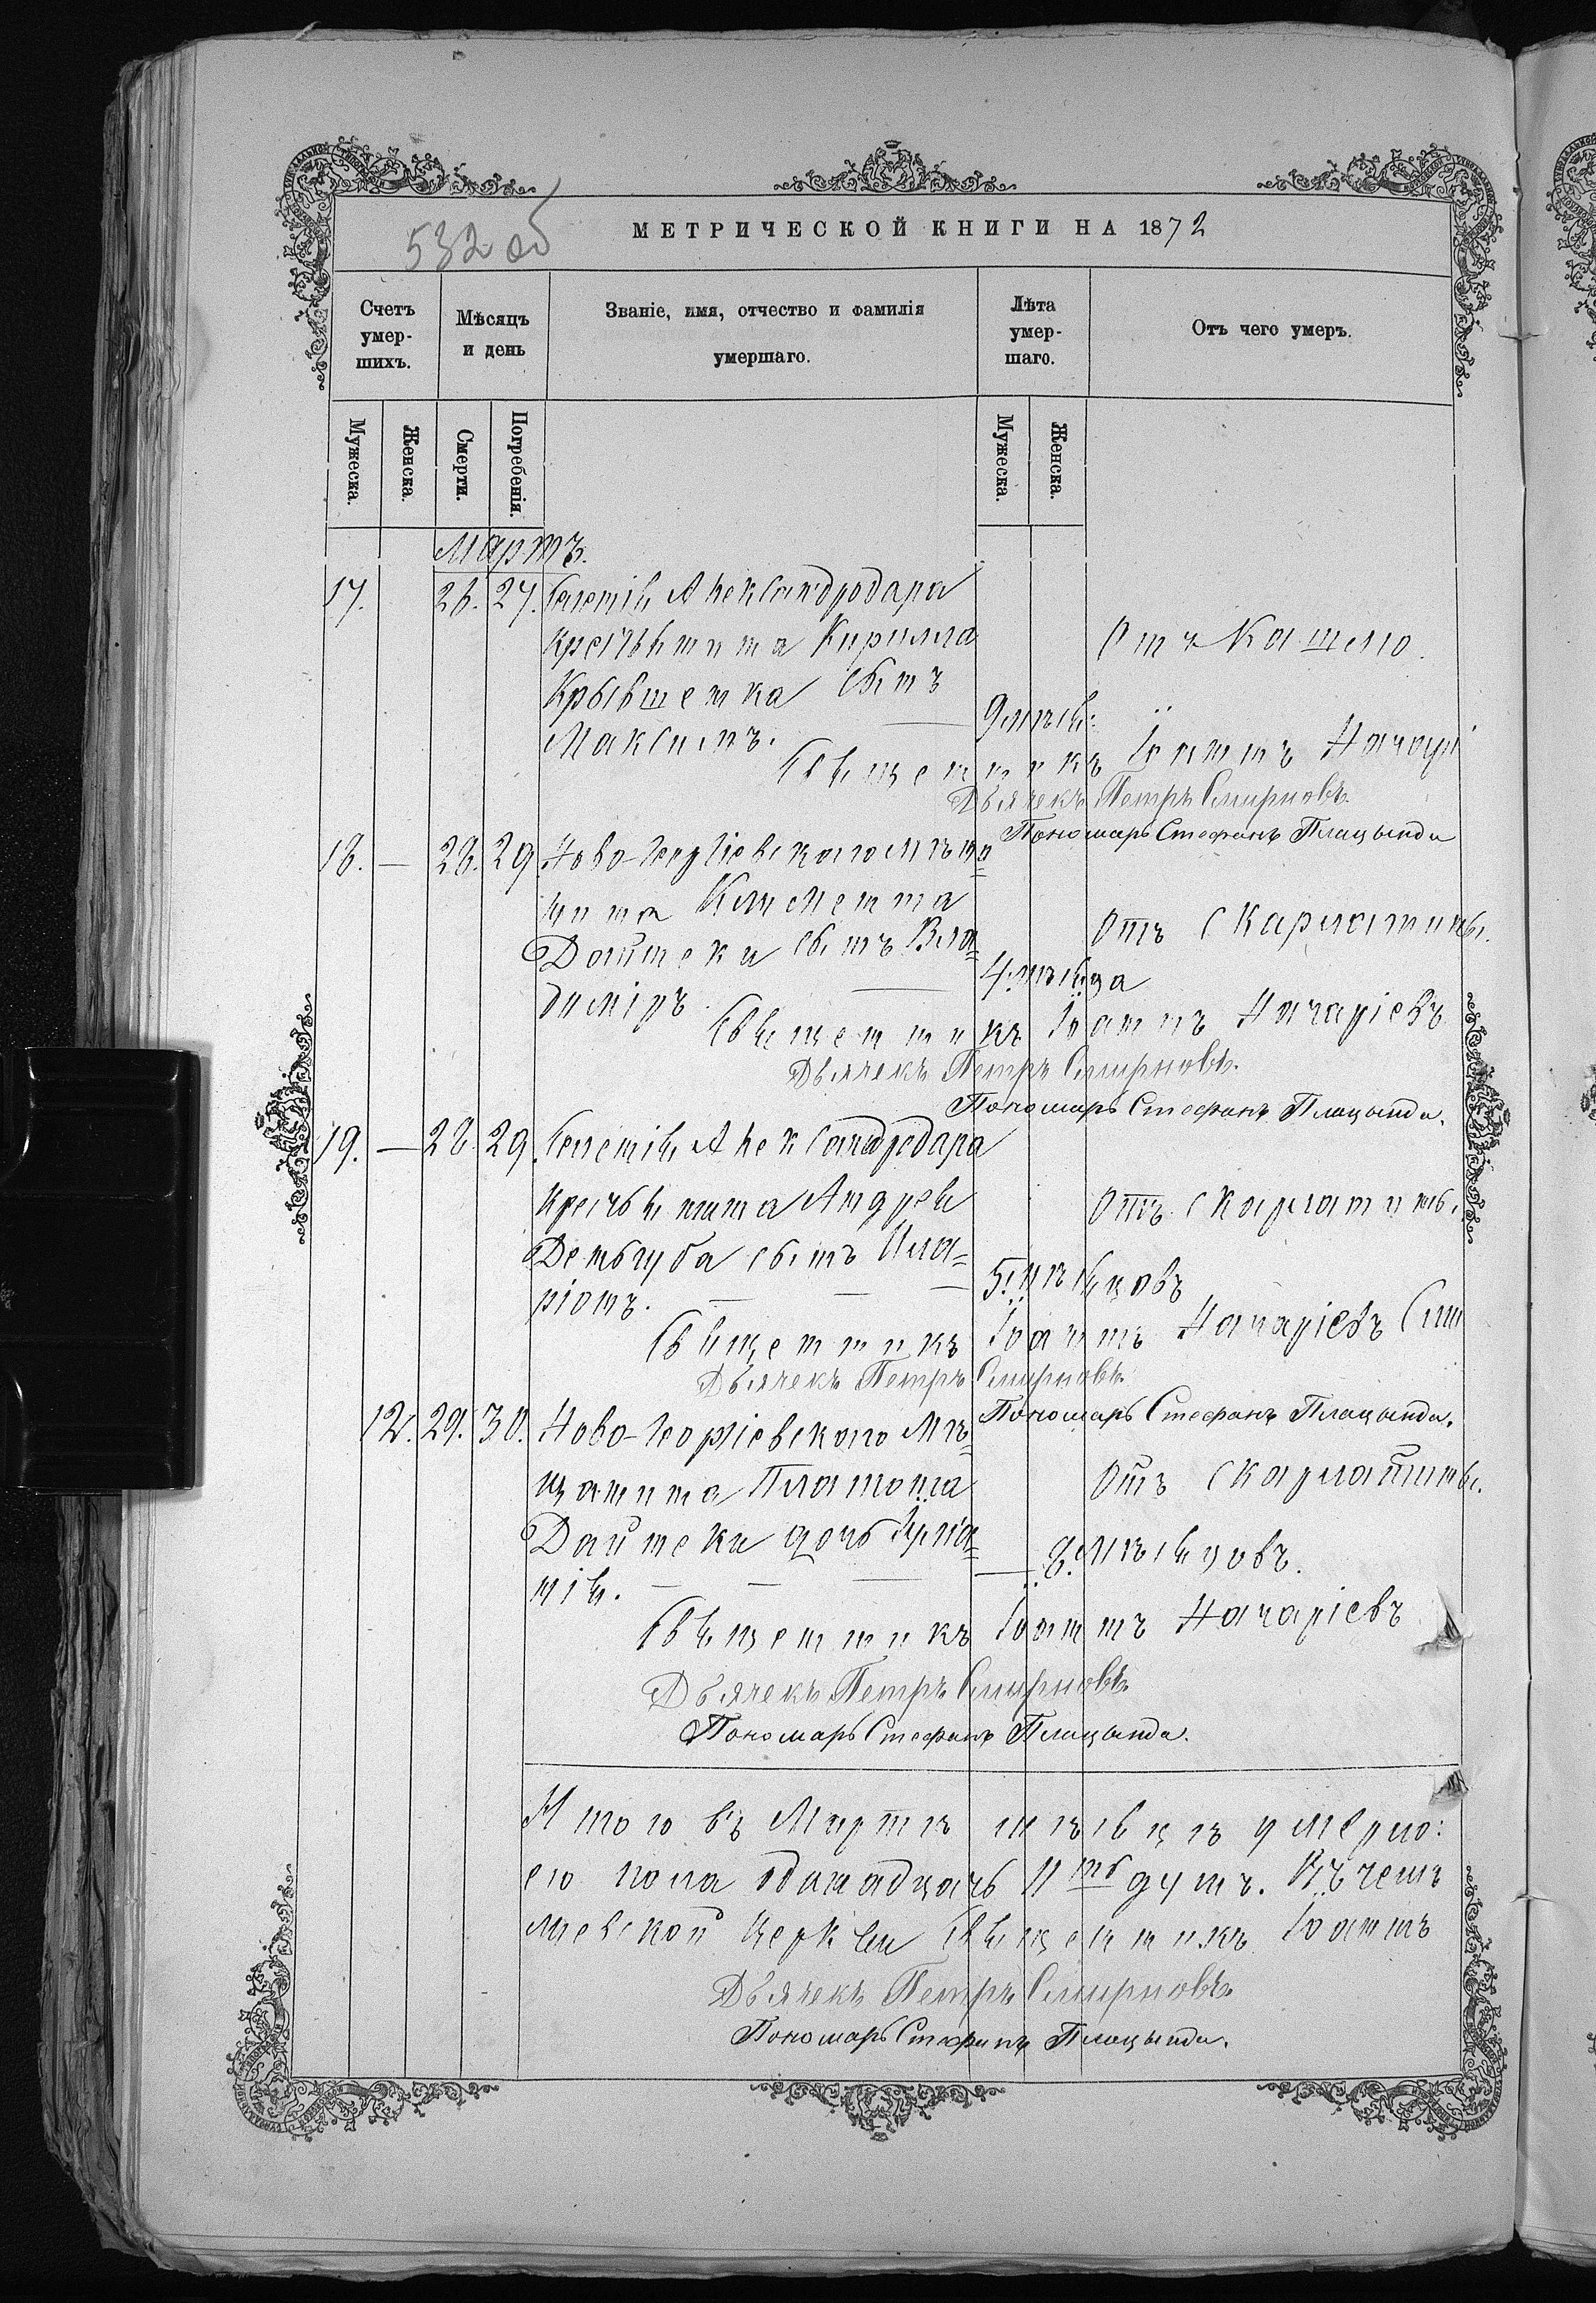 532 об
МЕТРИЧЕСКОЙ КНИГИ НА 1872
Счетъ умер-шихъ.
Мѣсяцъ и день
Званіе, имя, отчество и фамилія умершаго.
Лѣта умер-шаго.
Отъ чего умеръ.
Мужеска.
Женска.
Смерти.
Погребенія.
Мужеска.
Женска.
Мартъ.
17. 26. 27. Селенія Александродара
крестьянина Кирилла
Отъ Кашлю.
Крывшенка сынъ
Максимъ. — 9 мѣся:
Священникъ Іоаннъ
Дьячекъ Петръ Смирновъ.
Пономарь Стефанъ Плацында
18. — 28. 29. Ново-Георгіевскаго мѣща=
нина Климента
Отъ Скарлатины.
Дайнеки сынъ Вла=
диміръ. — 4. мѣсяца
Священникъ Іоаннъ Качаріевъ
Дьячекъ Петръ Смирновъ.
Пономарь Стефанъ Плацында.
19. — 28. 29. Селенія Александродара
крестьянина Андрея
Отъ Скарлатины.
сынъ Ила=
ріонъ. — — — 5. мѣсяцовъ
Священникъ Іоаннъ Качаріевъ
Дьячекъ Петръ Смирновъ.
Пономарь Стефанъ Плацында.
12. 29. 30. Ново-Георгіевскаго мѣ=
щанина Платона
Отъ Скарлатины.
Дайнеки дочь Іуліа=
нія. — — — — 8. мѣсяцовъ.
Священникъ Іоаннъ Качаріевъ
Дьячекъ Петръ Смирновъ.
Пономарь Стефанъ Плацында.
Итого въ Мартѣ мѣсяцѣ умерло:
его пола одинадцать 11ть душъ. Къ
Церкви Священникъ Іоаннъ
Дьячекъ Петръ Смирновъ.
Пономарь Стефанъ Плацында.